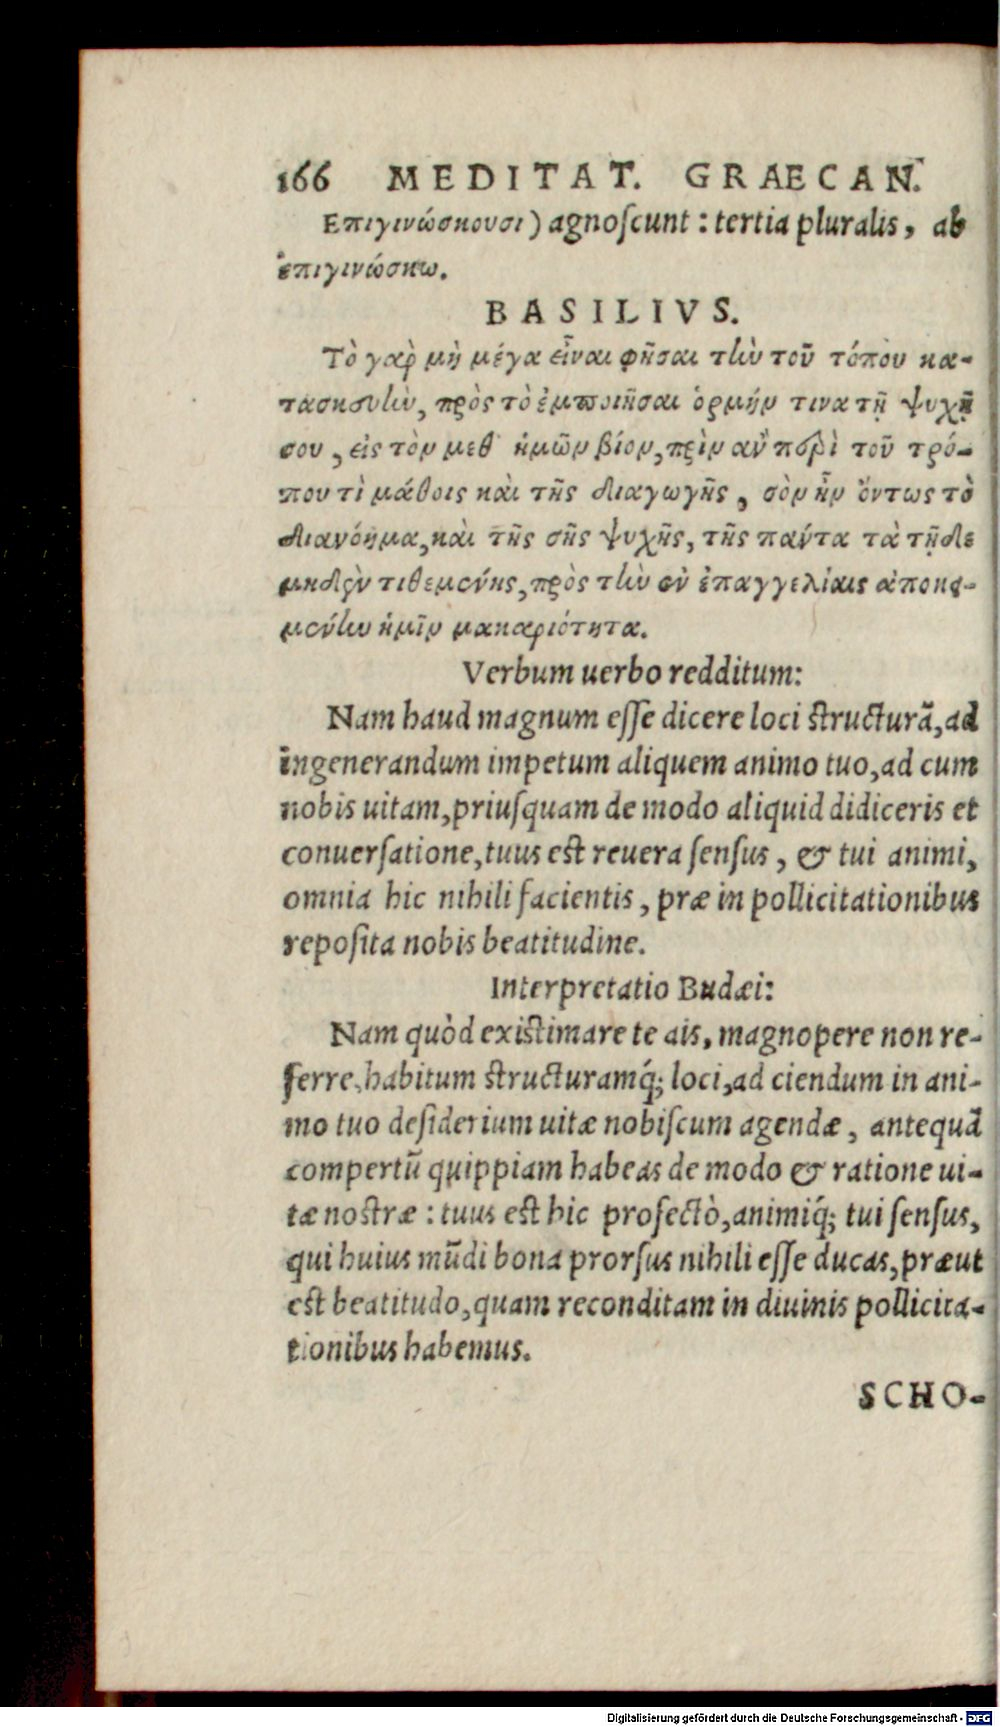 166 MEDITAT. GRAECAN.
Επιγινώσκουσι) agnoſcunt : tertia pluralis, ab
ἐπιγινώσκω.
BASILIVS.
Τὸ γαρ̀ μὴ μέγα εἶναι φῆσαι τὴν τοῦ τόπου κα-
τασκευὴν, πρὸς τὸ ἐμποιῆσαι ὁρμήν τινα τῇ ψυχῇ
σου, εἰς τὸν μεθ ἡμῶν βίον, πρὶν αὒ περὶ τοῦ τρό-
που τὶ μάθοις καὶ τῆς διαγωγῆς, σὸν ἦν ὄντως τὸ
διανόημα, καὶ τῆς σῆς ψυχῆς, τῆς παύτα τὰ τῇδε
μηδὲν τιθεμένης, πρὸς τὴν ἐν ἐπαγγελίαις ἀποκει-
μένην ἡμῖν μακαριότητα.
Verbum uerbo redditum:
Nam haud magnum eſſe dicere loci ſtructurā, ad
ingenerandum impetum aliquem animo tuo, ad cum
nobis uitam, priuſquam de modo aliquid didiceris et
conuerſatione, tuus est reuera ſenſus, & tui animi,
omnia hic nihili facientis, præ in pollicitationibus
repoſita nobis beatitudine.
Interpretatio Budæi:
Nam quòd existimare te ais, magnopere non re-
ferre, habitum ſtructuramq́; loci, ad ciendum in ani-
mo tuo deſiderium uitæ nobiſcum agendæ, antequā
compertū quippiam habeas de modo & ratione ui-
tæ nostræ : tuus est hic profectò, animiq́; tui ſenſus,
qui huius mūdi bona prorſus nihili eſſe ducas, præut
est beatitudo, quam reconditam in diuinis pollicita-
tionibus habemus.
SCHO-
Digitalisierung gefördert durch die Deutsche Forschungsgemeinschaft - DFG